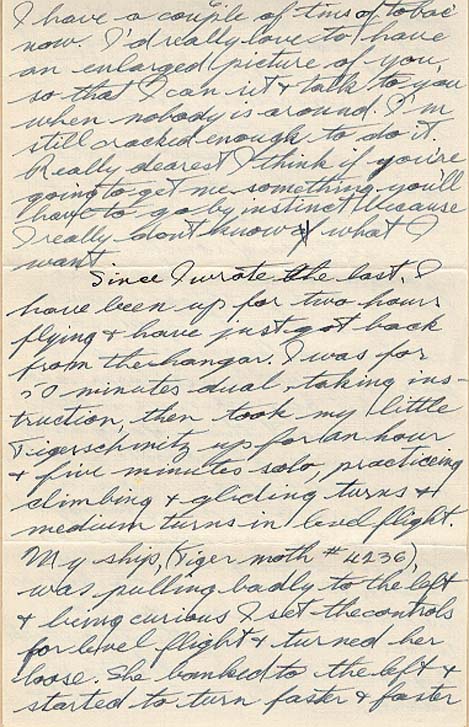 I have a couple of tins of tobac
now. I'd really love to have
an enlarged picture of you,
so that I can sit & talk to you
when nobody is around. I'm
still cracked enough to do it.
Really dearest I think if you're
going to get me something you'll
have to go by instinct because
I really don't know what I
want.
Since I wrote the last, I
have been up for two hours
flying & have just got back
from the hangar. I was for
50 minutes dual, taking ins-
truction, then took my little
Tigerschmitz up for an hour
& five minutes solo, practicing
climbing & gliding turns &
medium turns in level flight.
My ship, (Tiger moth # 4236),
was pulling badly to the left
& being curious I set the controls
for level flight & turned her
loose. She banked to the left &
started to turn faster & faster